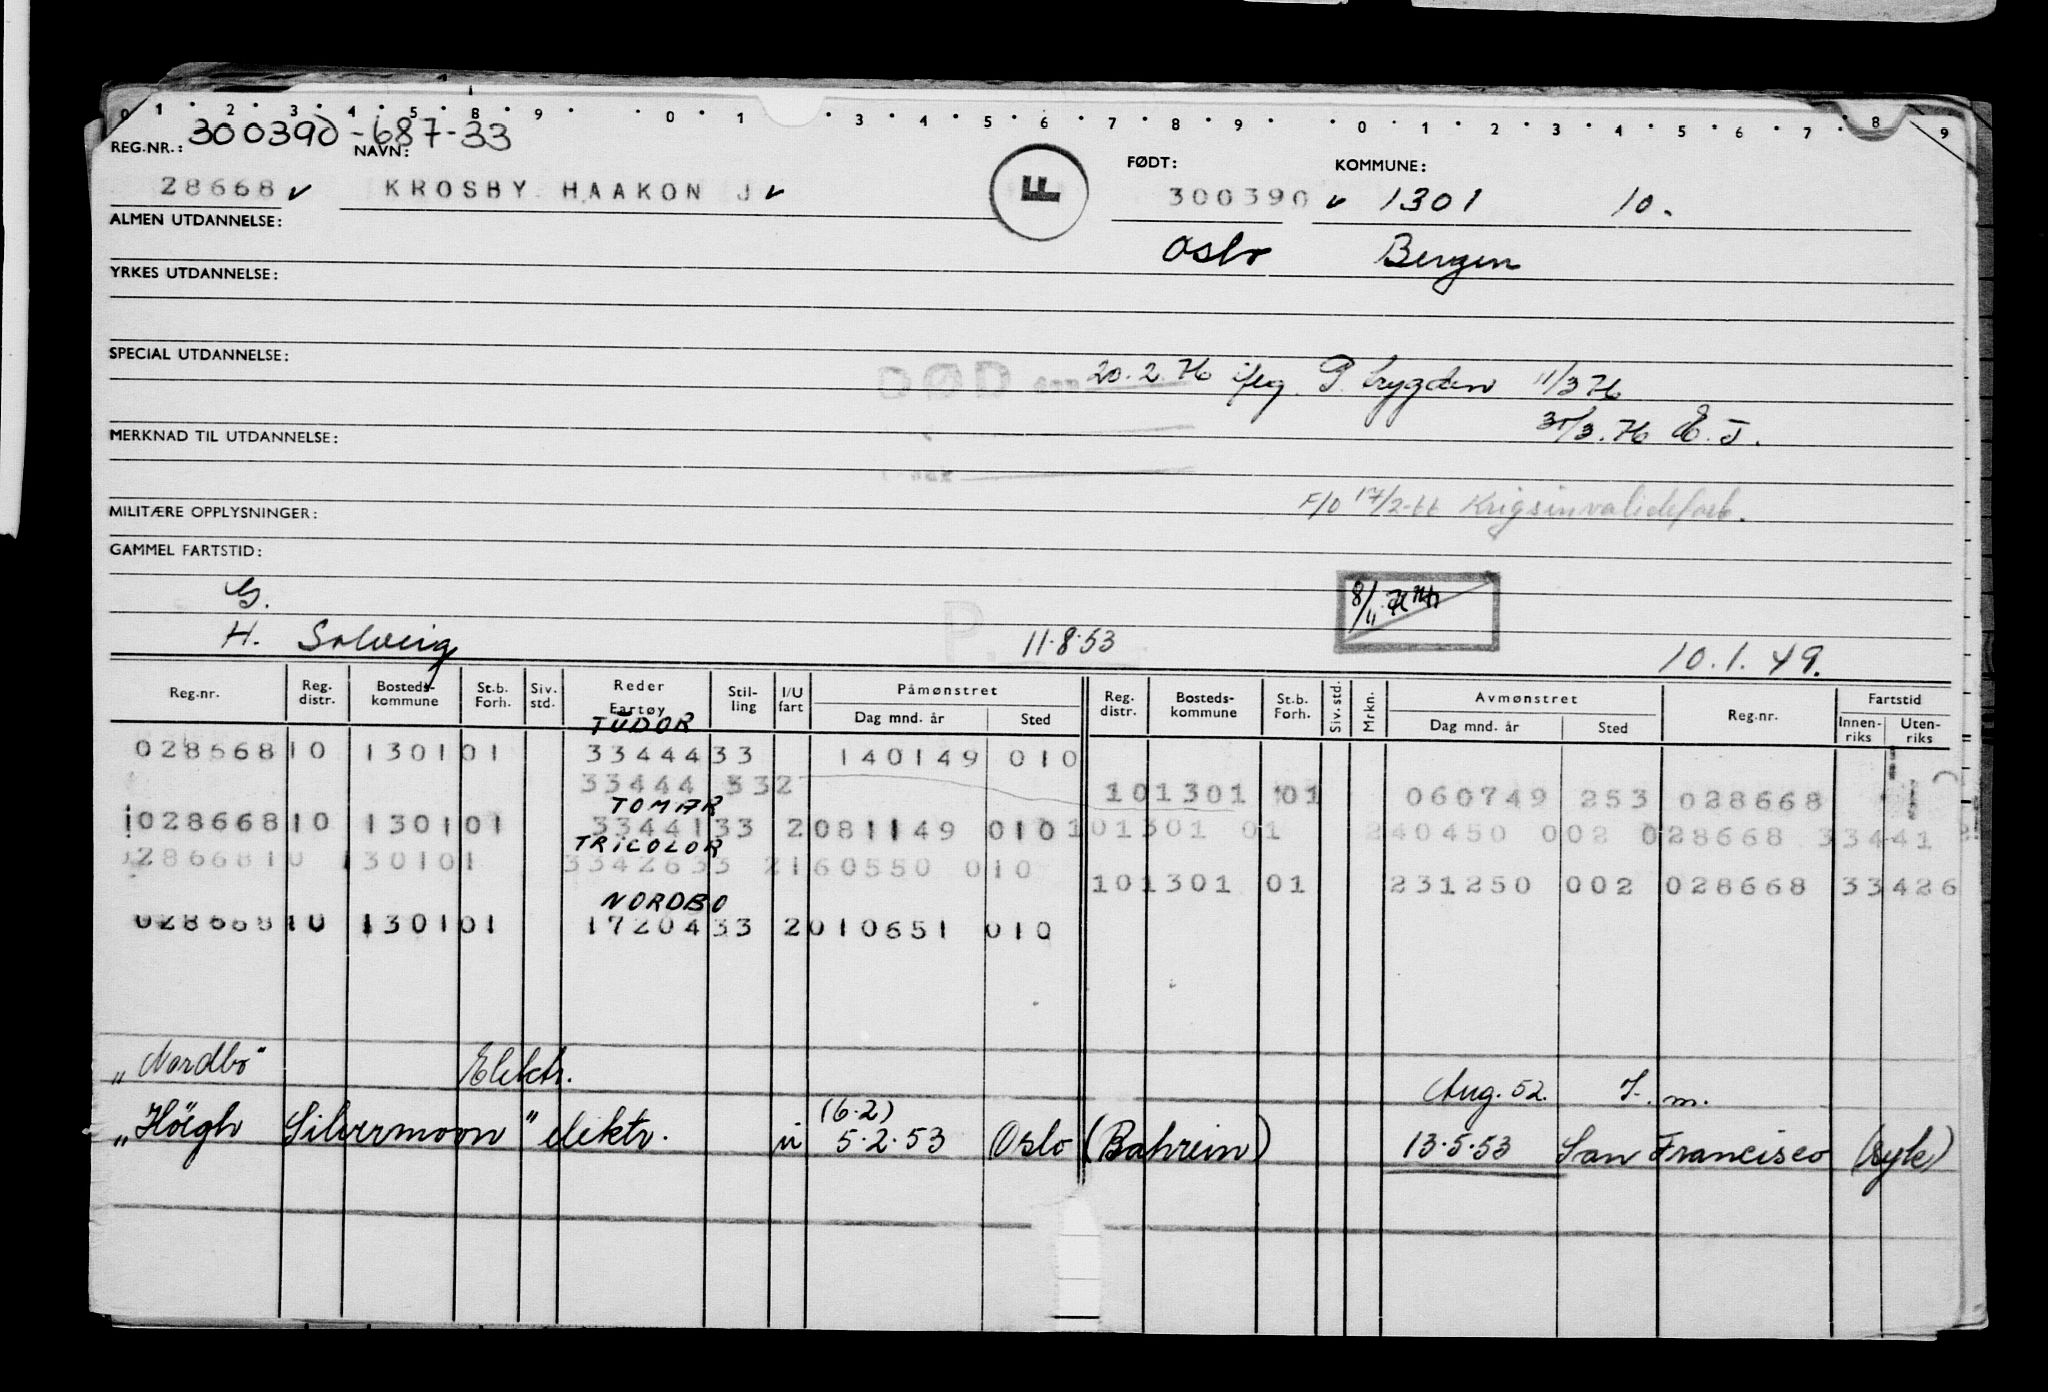 0 1 2 3 4 5 8 9 0 1 3 4 5 6 7 8 9 0 1 2 3 4 5 6 7 8 9
REG.NR.: 300390-687-33 NAVN: FØDT: KOMMUNE:
28668 KROSBY HAAKON J F 300390 1301 10.
ALMEN UTDANNELSE: Oslo Bergen
YRKES UTDANNELSE:
SPECIAL UTDANNELSE: DØD den 20.2.76 P. trygden 11/3 76
MERKNAD TIL UTDANNELSE: 31/3.76 E.J.
MILITÆRE OPPLYSNINGER: F/O 17/2-66 Krigsinvalideforb.
GAMMEL FARTSTID:
G. 8/11
H. Solveig P. 11.8.53 10.1.49.
Reg.nr. Reg. distr. Bosteds- kommune St.b. Forh. Siv. std. Reder Fartøy Stil- ling I/U fart Påmønstret Dag mnd. år Sted Reg. distr. Bosteds- kommune St.b. Forh. Siv. std. Mrkn. Avmønstret Dag mnd. år Sted Reg.nr. Fartstid Innen- riks Uten- riks
TUDOR
028668 10 1301 01 33444 33 140149 010
33444 332 10 1301 01 060749 253 028668
TOMAR
028668 10 1301 01 33441 33 2 081149 010 10 1301 01 240450 002 028668 33441
TRICOLOR
028668 10 1301 01 33426 33 2 160550 010
10 1301 01 231250 002 028668 33426
NORDBO
028668 10 1301 01 17204 33 2 010651 010
„Nordbo" Elektr. Aug. 52. F.m.
„Höegh Silvermoon" elektr. u (6.2) 5.2.53 Oslo (Bahrein) 13.5.53 San Francisco (syk)